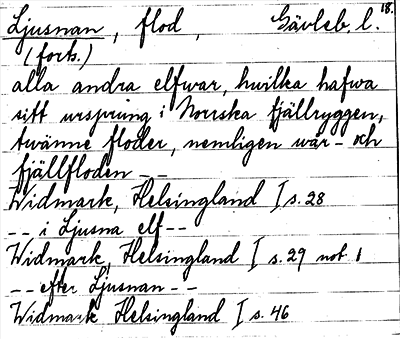 18.
Ljusnan, flod, Gävleb. l.
(forts.)
alla andra elfwar, hwilka hafwa
sitt ursprung i Norrska fjällryggen,
twänne floder, nemligen wår- och
fjällfloden --
Widmark, Helsingland I s. 28
-- i Ljusna elf --
Widmark, Helsingland I s. 29 not. 1
-- efter Ljusnan --
Widmark Helsingland I s. 46